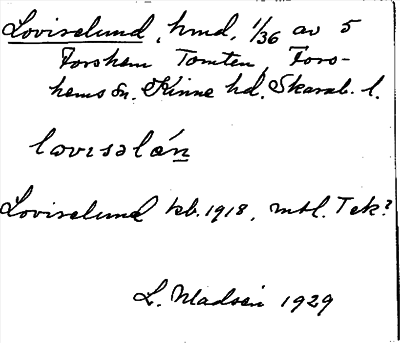 Loviselund, hmd, 1/36 av 5
Forshem Tomten, Fors-
hems sn. Kinne hd, Skarab. l.
lovisəlón
Lovisелund kb. 1918, mtl. Tek?
L. Madsén 1929